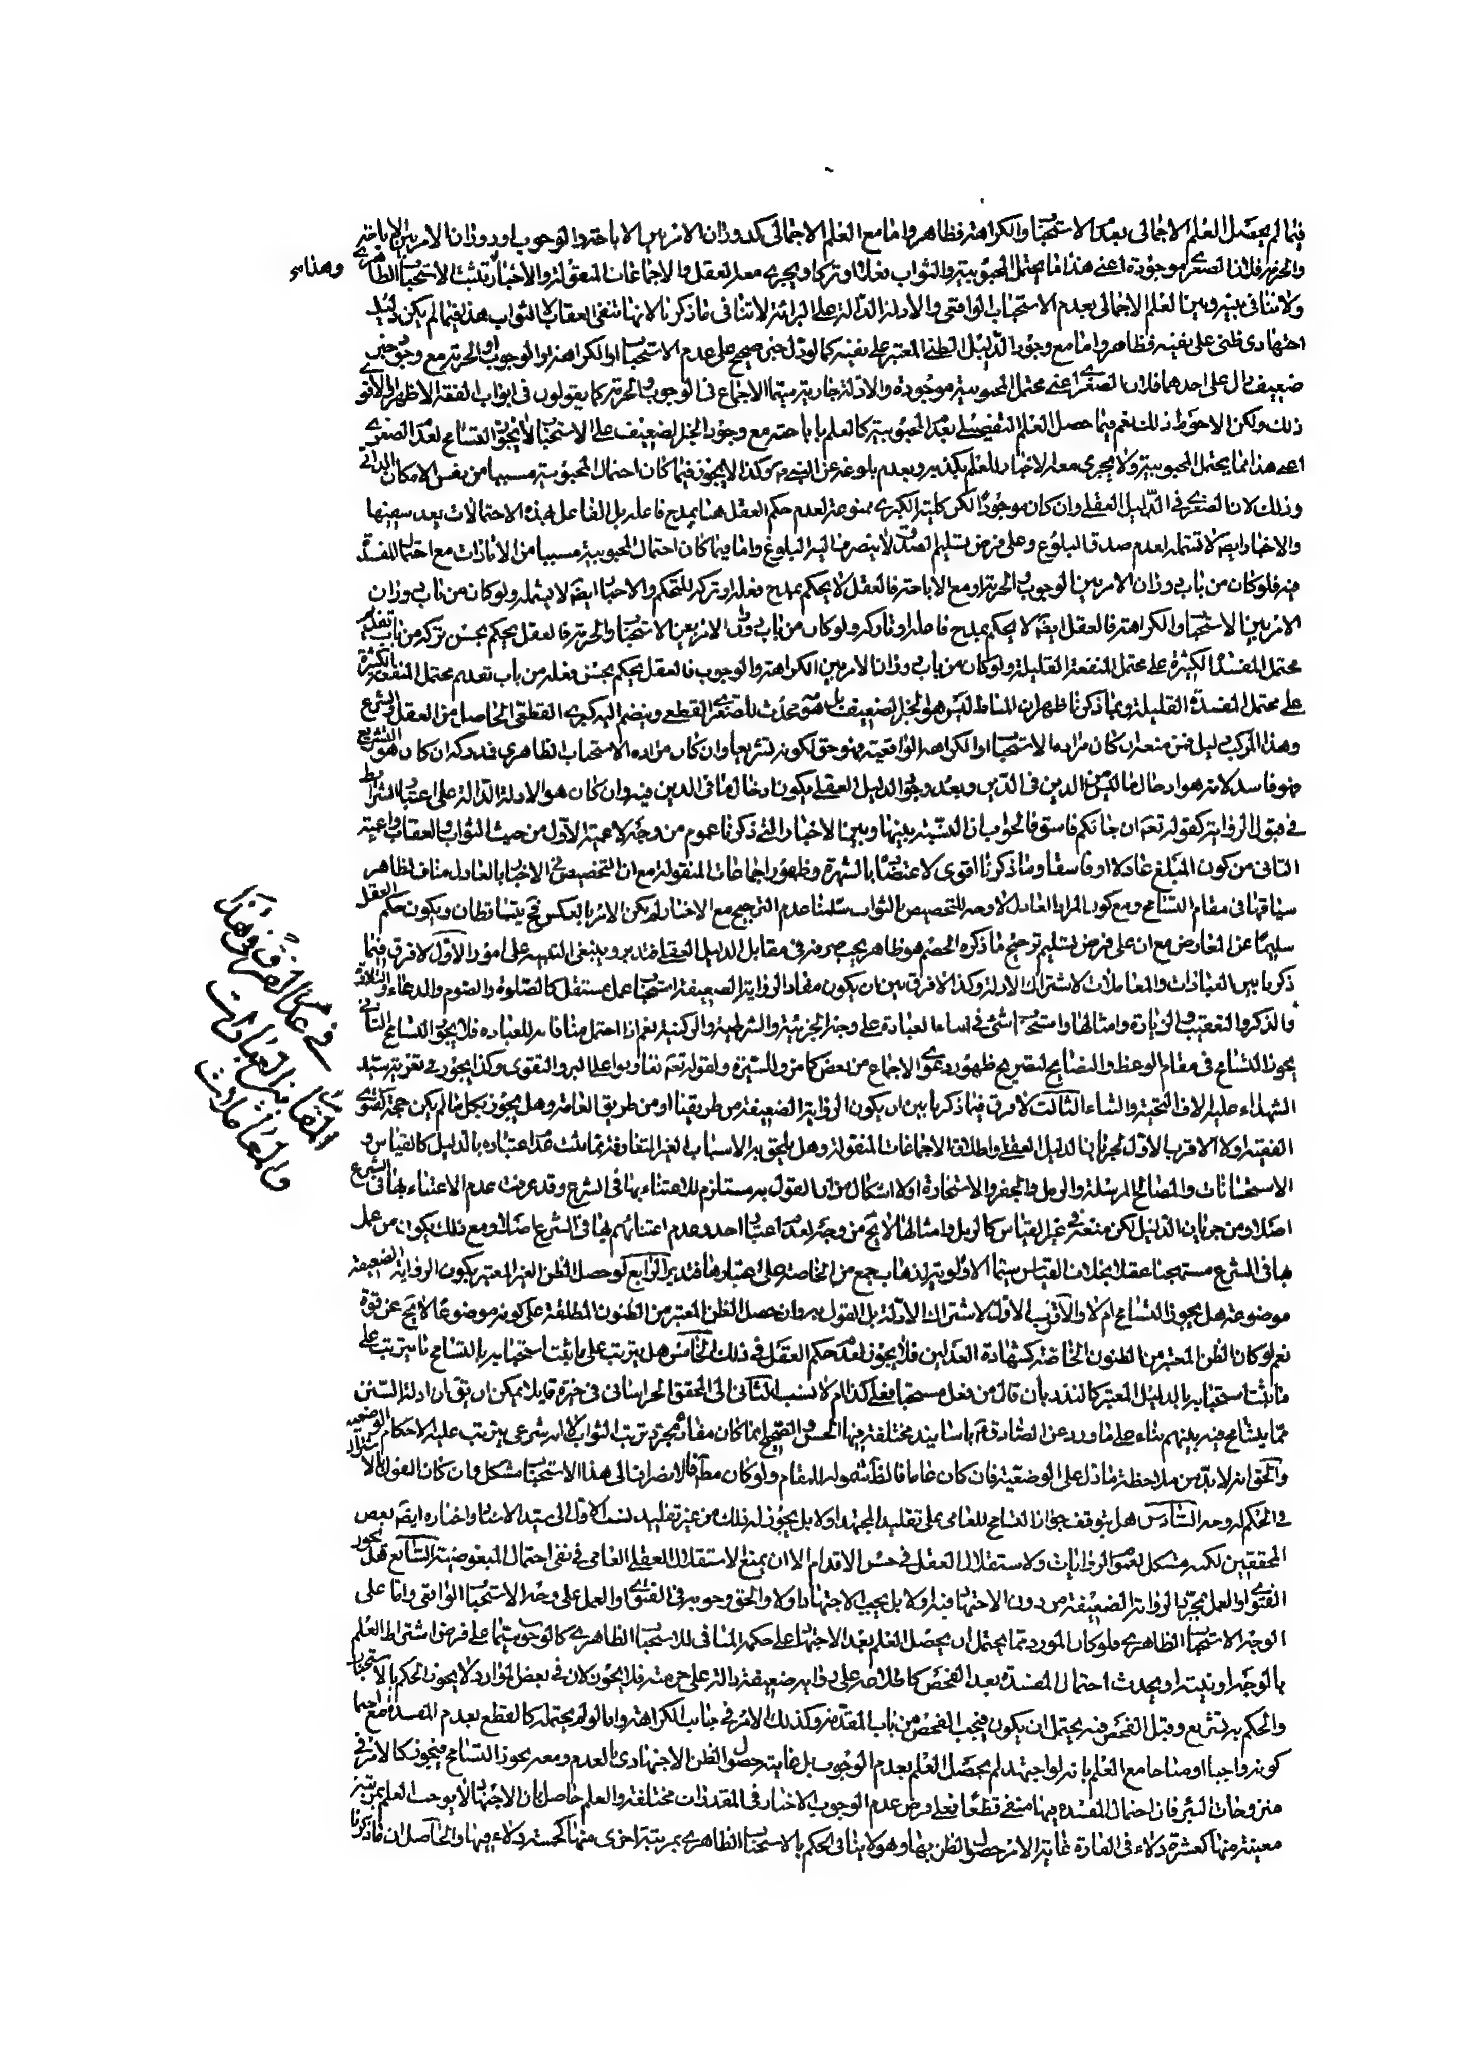 فيما لم يحصل العلم الاجمالى بعدم الاستحباب والكراهة فظاهر واما مع العلم الاجمالى كدوران الامر بين الاباحة والوجوب او دوران الامر بين الاباحة
والحرمة فلان الصغرى موجودة اعنى هذا ما يحتمل المحبوبية والثواب فعلا او تركا ويجرى معه العقل والاجماعات المنقولة والاخبار فثبت الاستحباب الظاهرى وهذا
ولا تنافى بينه وبين العلم الاجمالى بعدم الاستحباب الواقعى والادلة الدالة على البرائة لا تنافى ما ذكرنا لانها تنفى العقاب لا الثواب هذا فيما لم يكن دليل
اجتهادى ظنى على نفيه فظاهر واما مع وجود الدليل الظنى المعتبر على نفيه كما لو دل خبر صحيح على عدم الاستحباب او الكراهة او الوجوب او الحرمة مع وجود خبر
ضعيف دال على احدهما فلان الصغرى اعنى محتمل المحبوبية موجودة والادلة جارية سيما الاجماع فى الوجوب والحرمة كما يقولون فى ابواب الفقه الاظهر والاقوى
ذلك ولكن الاحوط ذلك نعم فيما حصل العلم التفصيلى بعدم المحبوبية كالعلم باباحته مع وجود الخبر الضعيف على الاستحباب لا يجوز التسامح لعدم الصغرى
اعنى هذا مما يحتمل المحبوبية ولا يجرى معه الاخبار للعلم بكذبه وبعدم بلوغه عن النبى ص وكذا لا يجوز فيما كان احتمال المحبوبية مسببا من نفس الامكان الذاتى
وذلك لان الصغرى فى الدليل العقلى وان كان موجودا لكن كلية الكبرى ممنوعة لعدم حكم العقل هنا بمدح فاعله بل الفاعل بهذه الاحتمالات يعد سفيها
والاخبار ايضا لا تشمله لعدم صدق البلوغ وعلى فرض تسليم الصدق لا ينصرف اليه البلوغ واما فيما كان احتمال المحبوبية مسببا من الامارات مع احتمال المفسدة
فيه فلو كان من باب دوران الامر بين الوجوب والحرمة او مع الاباحة فالعقل لا يحكم بمدح فعله او تركه للتحكم والاخبار ايضا لا يشمله ولو كان من باب دوران
الامر بين الاستحباب والكراهة فالعقل ايضا لا يحكم بمدح فاعله او تاركه ولو كان من باب دوران الامر بين الاستحباب والحرمة فالعقل يحكم بحسن تركه من باب تقديم
محتمل المفسدة الكثيرة على محتمل المنفعة القليلة ولو كان من باب دوران الامر بين الكراهة والوجوب فالعقل يحكم بحسن فعله من باب تقديم محتمل المنفعة الكثيرة
على محتمل المفسدة القليلة وبما ذكرنا ظهر ان المناط ليس هو الخبر الضعيف بل هو محدث للصغرى القطعى وينضم اليه كبرى القطعى الحاصل من العقل والشرع
وهذا المركب دليل فمن منعه ان كان مراده الاستحباب او الكراهة الواقعية فهو حق لكونه تشريعا وان كان مراده الاستحباب الظاهرى فمدركه ان كان هو التشريع
فهو فاسد لانه هو ادخال ما ليس من الدين فى الدين وبعد وجود الدليل العقلى يكون ادخال ما فى الدين فيه وان كان هو الادلة الدالة على اعتبار الشرائط
فى قبول الرواية كقوله تعه ان جائكم فاسق فالجواب ان النسبة بينها وبين الاخبار التى ذكرنا عموم من وجه لاعمية الاول من حيث الثواب والعقاب واعمية
الثانى من كون المبلغ عادلا او فاسقا وما ذكرنا اقوى لاعتضاده بالشهرة وظهور اجماعات المنقولة مع ان التخصيص فى الاخبار بالعادل مناف لظاهر
سياقها فى مقام التسامح ومع كون المراد العادل لا وجه للتخصيص بالثواب سلمنا عدم الترجيح مع الاخبار لو لم يكن الامر بالعكس فح يتساقطان ويكون حكم العقل
سليما عن المعارض مع ان على فرض تسليم ترجيح ما ذكره الخصم هو ظاهر يجب صرفه فى مقابل الدليل العقلى فتدبر وينبغى التنبيه على امور الاول لا فرق فيما
ذكرنا بين العبادات والمعاملات لاشتراك الادلة وكذا لا فرق بين ان يكون مفاد الرواية الضعيفة استحباب عمل مستقل كالصلوة والصوم والدعاء والتلاوة
والذكر والتعقيب والزيارة وامثالها واستحباب شئ فى اثناء العبادة على وجه الجزئية والشرطية والركنية نعم اذا احتمل منافاته للعبادة فلا يجوز التسامح الثانى
يجوز التسامح فى مقام الوعظ والنصائح لتصريح ظهور دعوى الاجماع من بعض كما مر والسيرة ولقوله تعه تعاونوا على البر والتقوى وكذا يجوز فى تعزية سيد
الشهداء عليه الاف التحية والثناء الثالث لا فرق فيما ذكرنا بين ان يكون الرواية الضعيفة من طريقنا او من طريق العامة وهل يجوز بكل ما لم يكن حجة كفتوى
الفقيه او لا الاقرب الاول لجريان الدليل العقلى واطلاق الاجماعات المنقولة وهل يلحق به الاسباب الغير المتعارفة مما يثبت عدم اعتباره بالدليل كالقياس و
الاستحسانات والمصالح المرسلة والرمل والجفر والاستخارة او لا اشكال من ان القول به مستلزم للاعتناء بها فى الشرع وقد عرفت عدم الاعتناء بها فى الشرع
اصلا ومن جريان الدليل لكن منعه فى غير القياس كالرمل وامثالها لا يخ من وجه لعدم اعتبار احد وعدم اعتنائهم بها فى الشرع اصلا ومع ذلك يكون من عمل
بها فى الشرع مستهجنا عقلا بخلاف القياس سيما الاولوية لذهاب جمع من الخاصة على اعتبارها فتدبر الرابع لو حصل الظن الغير المعتبر بكون الرواية الضعيفة
موضوعة هل يجوز التسامح ام لا والاقرب الاول لاشتراك الادلة بل القول به وان حصل الظن المعتبر من الظنون المطلقة على كونه موضوعا لا يخ عن قوة
نعم لو كان الظن المعتبر من الظنون الخاصة كشهادة العدلين فلا يجوز لعدم حكم العقل فى ذلك الخامس هل يترتب على ما يثبت استحبابه بالتسامح ما يترتب على
ما يثبت استحبابه بالدليل المعتبر كالنذر بان قال من فعل مستحبا فعلى كذا ام لا نسب الثانى الى المحقق الخراسانى فى خيرة قابلا يمكن ان يق ان ادلة السنن
مما يتسامح فيه بينهم بناء على ما ورد عن الصادق ع باسانيد مختلفة فيها الحسن والصحيح انما كان مفاده مجرد ترتب الثواب لا انه شرعى يترتب عليه الاحكام الوضعية
والحق انه لا بد من ملاحظة ما دل على الوضعية فان كان عاما فالظ شموله للمقام ولو كان مطلقا فالانصراف الى هذا الاستحباب مشكل وان كان القول بالاشتراك
فى الحكم له وجه السادس هل يتوقف جواز التسامح للعامى على تقليد المجتهد او لا بل يجوز له ذلك من غير تقليد نسب الاول الى سيد الاستاد واختاره ايضا بعض
المحققين لكنه مشكل لعموم الروايات ولاستقلال العقل فى حسن الاقدام الا ان يمنع الاستقلال العقلى العامى فى نفى احتمال المبغوضية السابع هل يجوز
الفتوى او العمل بمجرد الرواية الضعيفة من دون الاجتهاد فيه او لا بل يجب الاجتهاد او لا والحق وجوبه فى الفتوى او العمل على وجه الاستحباب الواقعى واما على
الوجه الاستحباب الظاهرى فلو كان المورد مما يحتمل ان يحصل العلم بعد الاجتهاد على حكمه المنافى للاستحباب الظاهرى كالوجوب سيما على فرض اشتراط العلم
بالوجه او نيته او يحدث احتمال المفسدة بعد الفحص كاطلاعه على رواية ضعيفة دالة على حرمته فلا يجوز لان فى بعض الموارد لا يجوز الحكم بالاستحباب
والحكم به تشريع وقبل الفحص فيه يحتمل ان يكون فيجب الفحص من باب المقدمة وكذلك الامر فى جانب الكراهة واما لو لم يحتمل كالقطع بعدم المفسدة مع احتمال
كونه واجبا او مباحا مع العلم بانه لو اجتهد لم يحصل العلم بعدم الوجوب بل غايته حصول الظن الاجتهادى بالعدم ومعه يجوز التسامح فيجوز كالامر فى
منزوحات البئر فان احتمال المفسدة فيها منفى قطعا فعلى فرض عدم الوجوب الاخبار فى المقدرات مختلفة والعلم حاصل بان الاجتهاد لا يوجب العلم بمرتبة
معينة منها كعشرة دلاء فى الفارة غاية الامر حصول الظن بها وهو لا ينافى الحكم بالاستحباب الظاهرى بمرتبة اخرى منها كخمسة دلاء فيها والحاصل ان ما ذكرنا
فى عدم الفرق فى هذا
المقام بين العبادات
والمعاملات